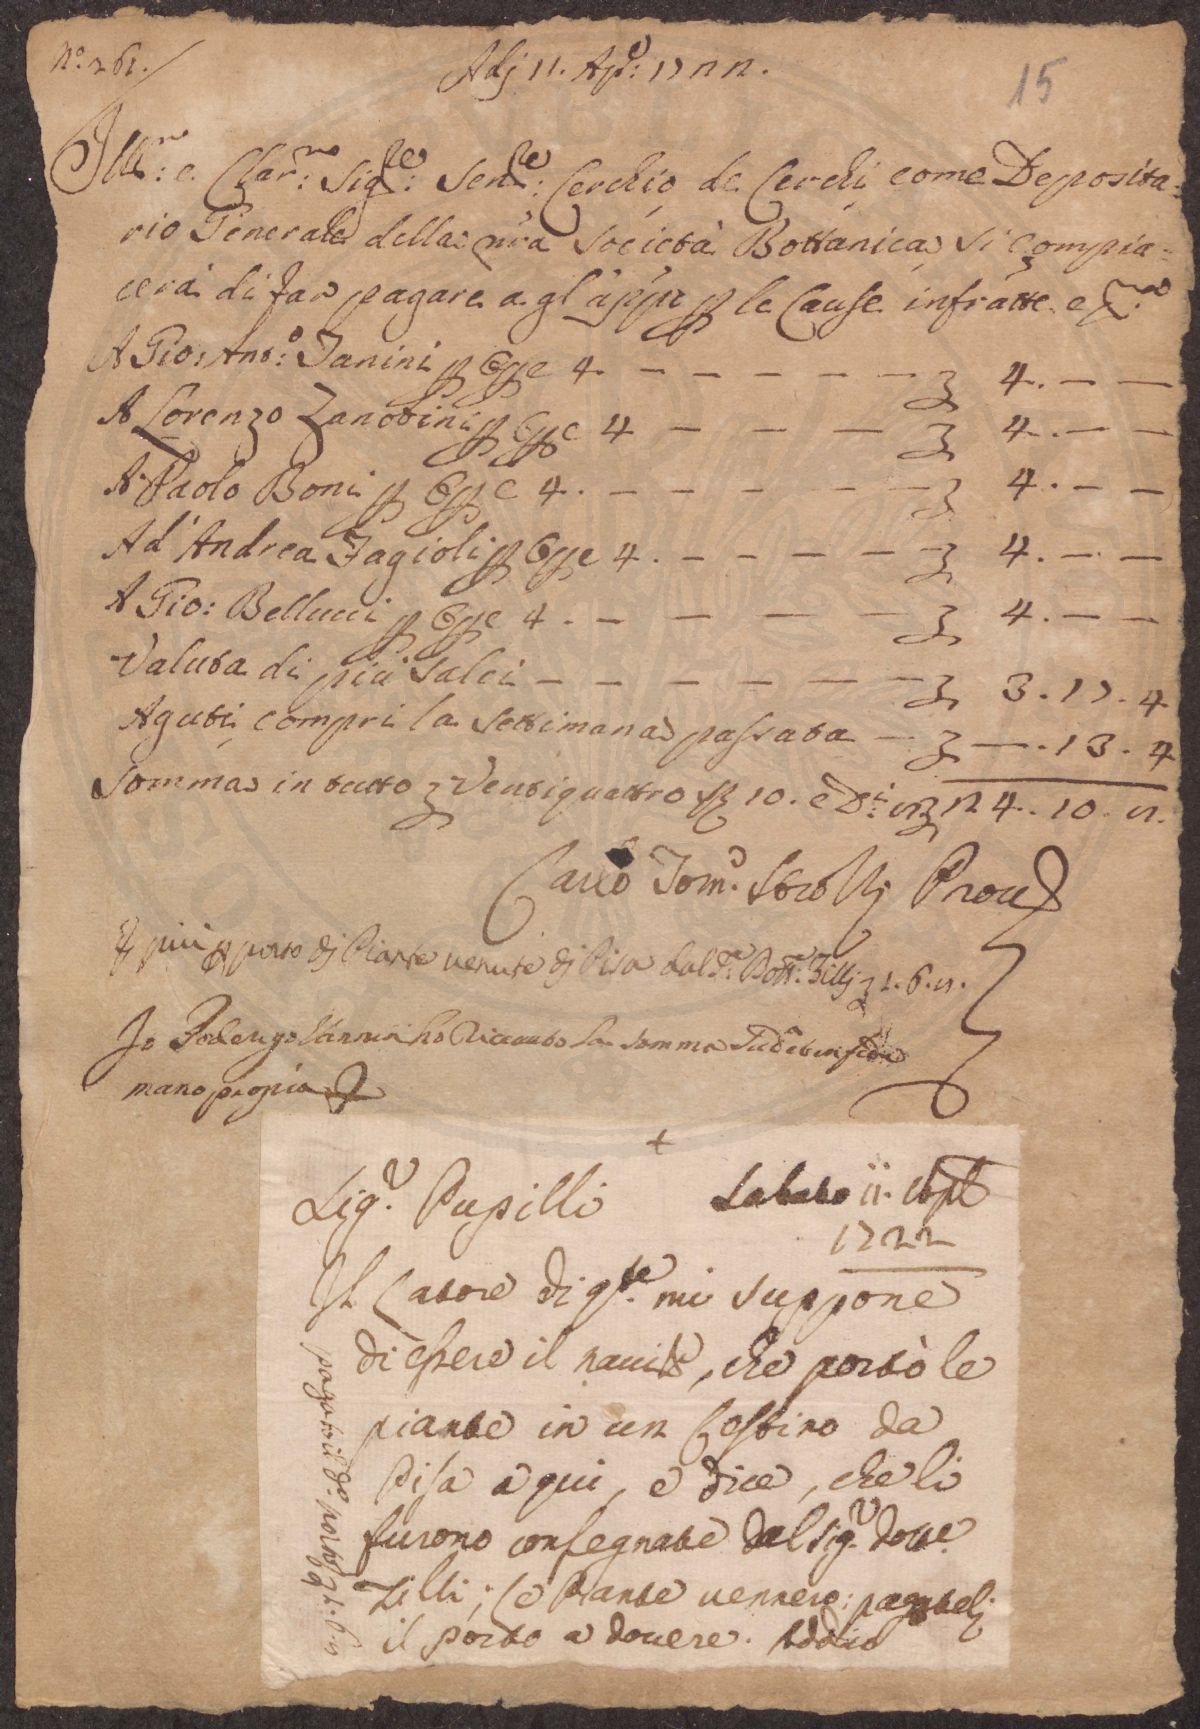 N.º 261.
Adj 11. Ap.e: 1722.
15
Ill.mo: e. Clar.mo: Sig.re: Sen.re: Cerchio de Cerchi come Deposita=
rio Generale della nra Società Bottanica si compia=
cerà di far pagare a gl'appi p le Cause infratte e
A Gio: Ant.o: Fanini p Ope 4. — — — — — — 4. — —
A Lorenzo Zanobini p Ope 4 — — — 4. — —
A Paolo Boni p Ope 4. — — — — — 4. — —
Ad'Andrea Fagioli p Ope 4. — — — — 4. — —
A Gio: Bellucci p Ope 4. — — — — — 4. — —
Valuta di più salci — — — — — — 3. 17. 4
Aguti compri la settimana passata — — . 13. 4
Somma in tutto Ventiquattro 10. e 24. 10.
Carlo Tom.o Strozzi Prov
E più p porto di Piante venute di Pisa dal S.r: Dott.r: Tilli 1. 6.
Io ho riceuto la somma
mano propia
+
Sig.r Pupilli Sabato 11. Aple
1722
Il Latore di q.sta mi suppone
di essere il , che portò le
piante in un Cestino da
Pisa a qui, e dice, che li
furono consegnate dal Sig.r dott.e
Tilli; se Piante vennero: pagateli
il porto a dovere. Addio
pagato il d.o: porto 1. 6